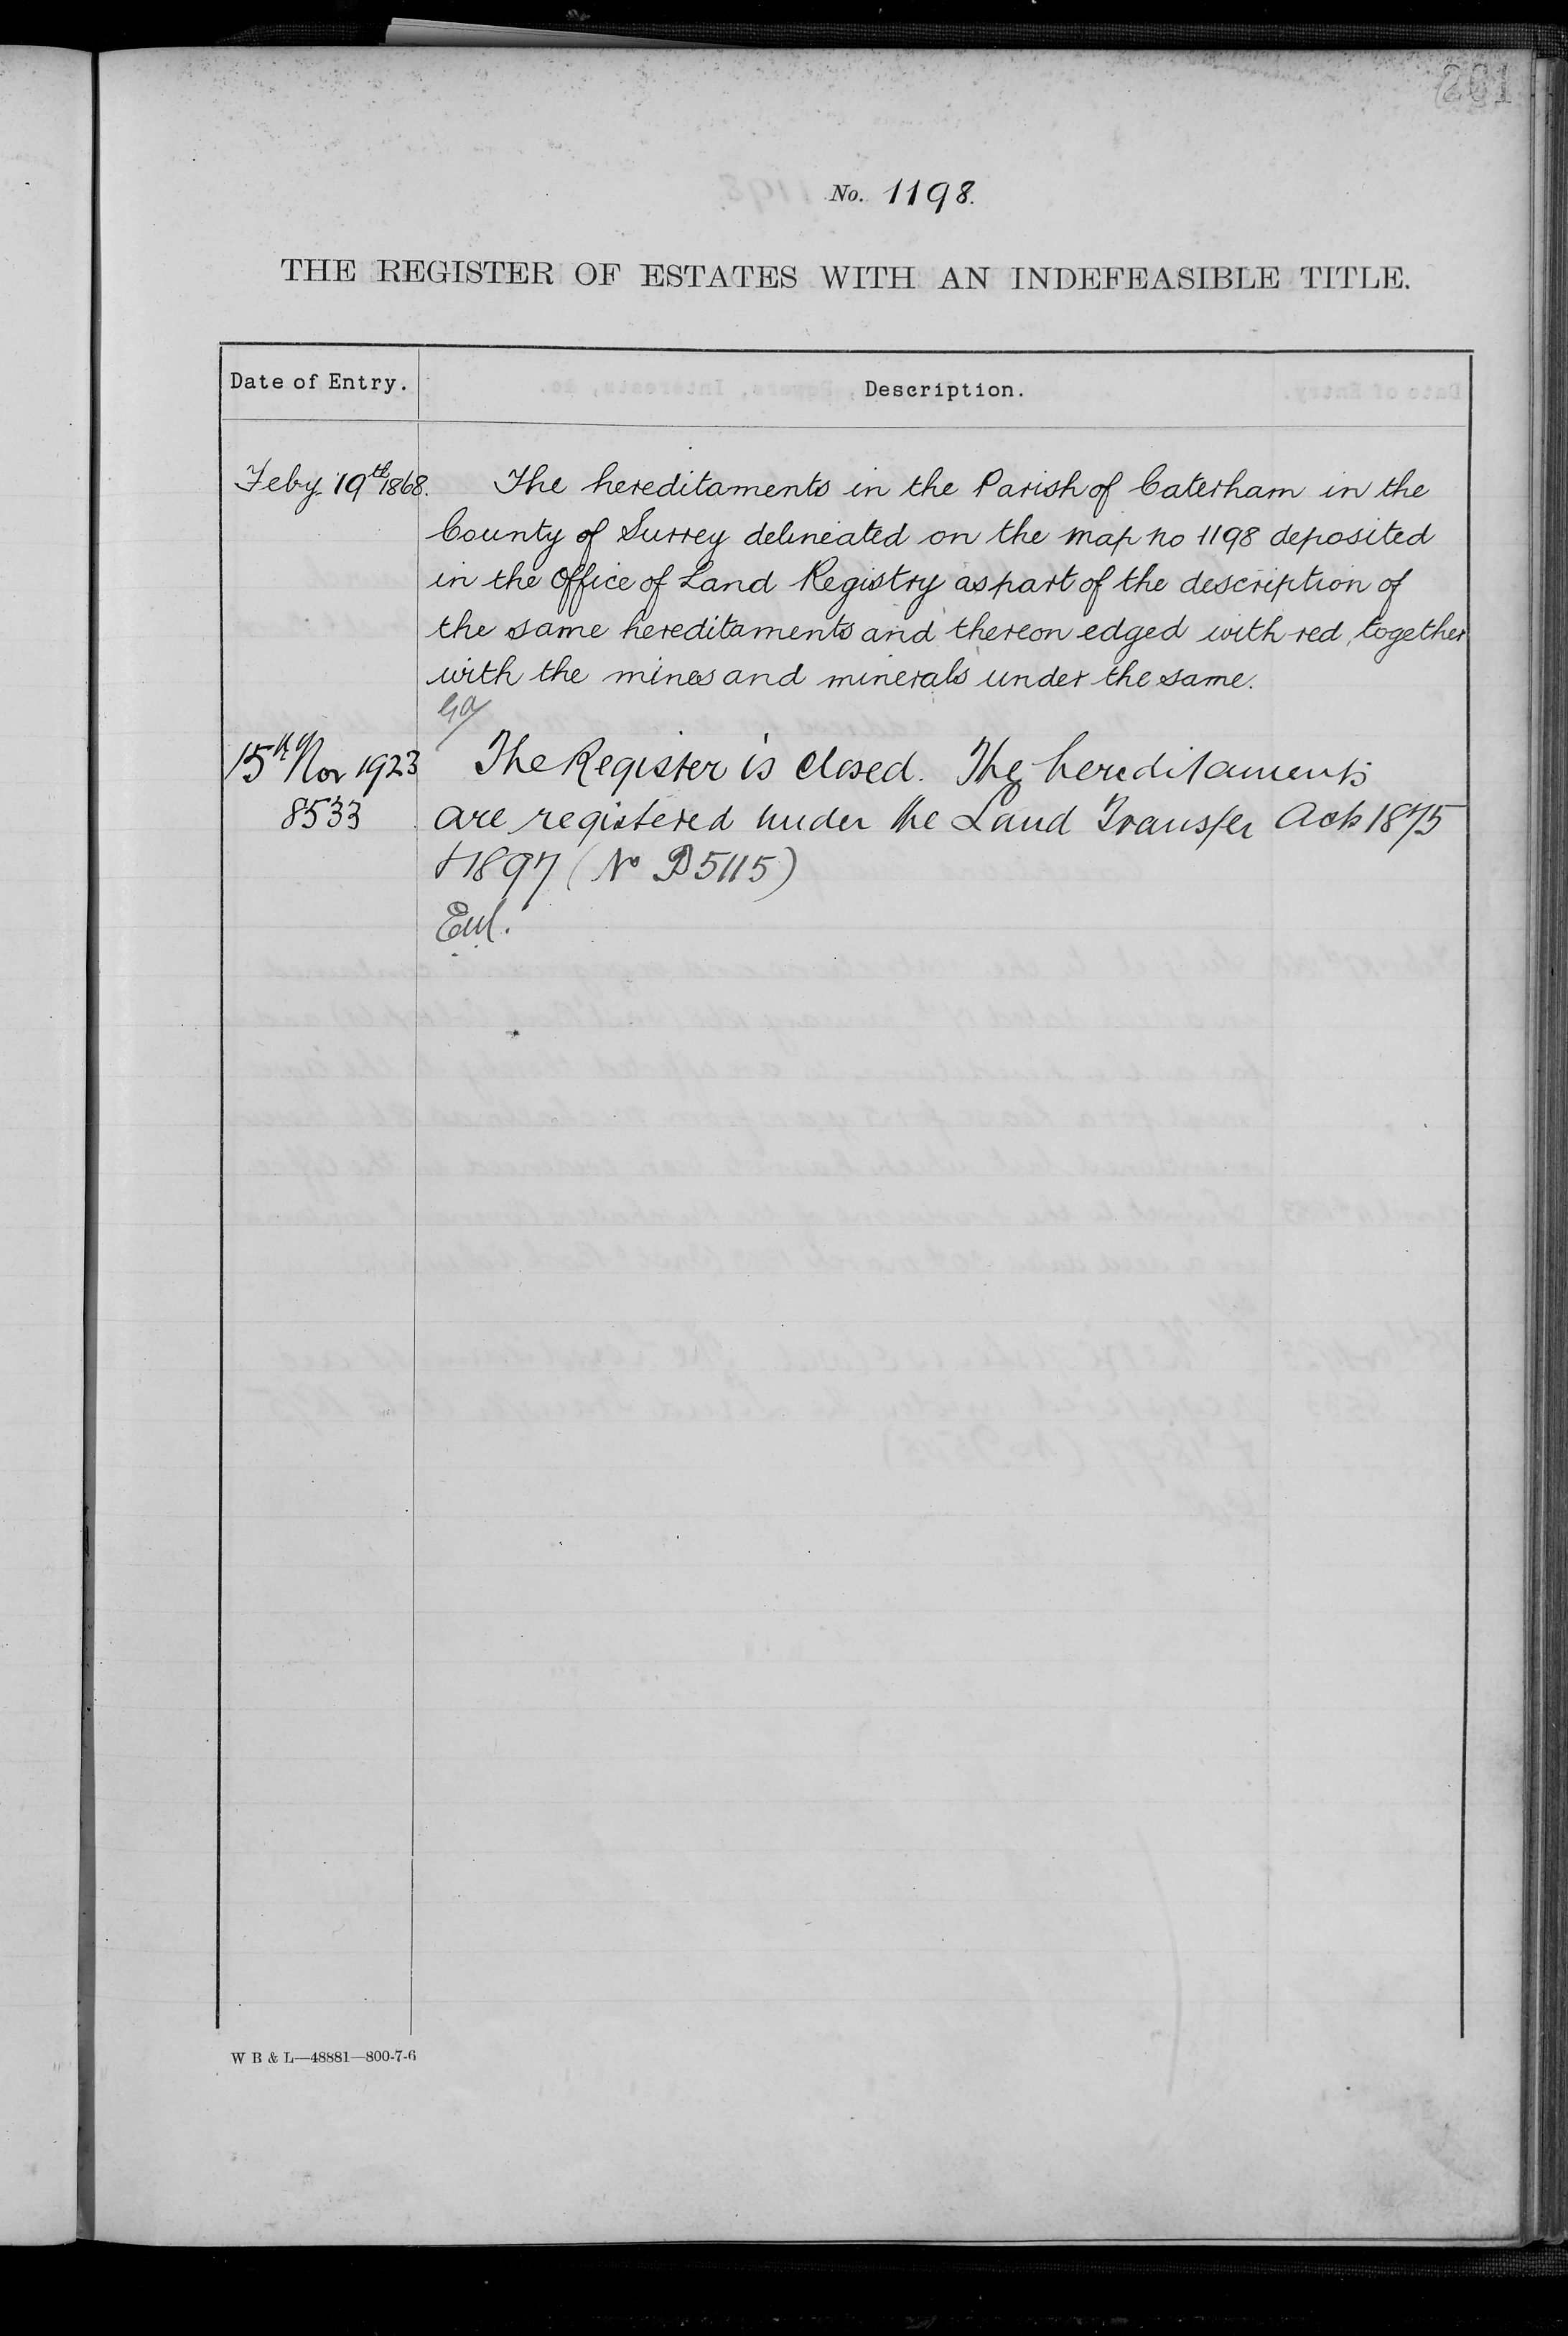 261
No. 1198.
THE REGISTER OF ESTATES WITH AN INDEFEASIBLE TITLE.
Date of Entry.
Description.
Feby. 19th 1868. The hereditaments in the Parish of Caterham in the
County of Surrey delineated on the map no 1198 deposited
in the Office of Land Registry as part of the description of
the same hereditaments and thereon edged with red, together
with the mines and minerals under the same.
15th Nov 1923 The Register is closed. The hereditaments
8533 are registered under the Land Transfer Acts 1875
& 1897 (No P5115)
W B & L—48881—800-7-6